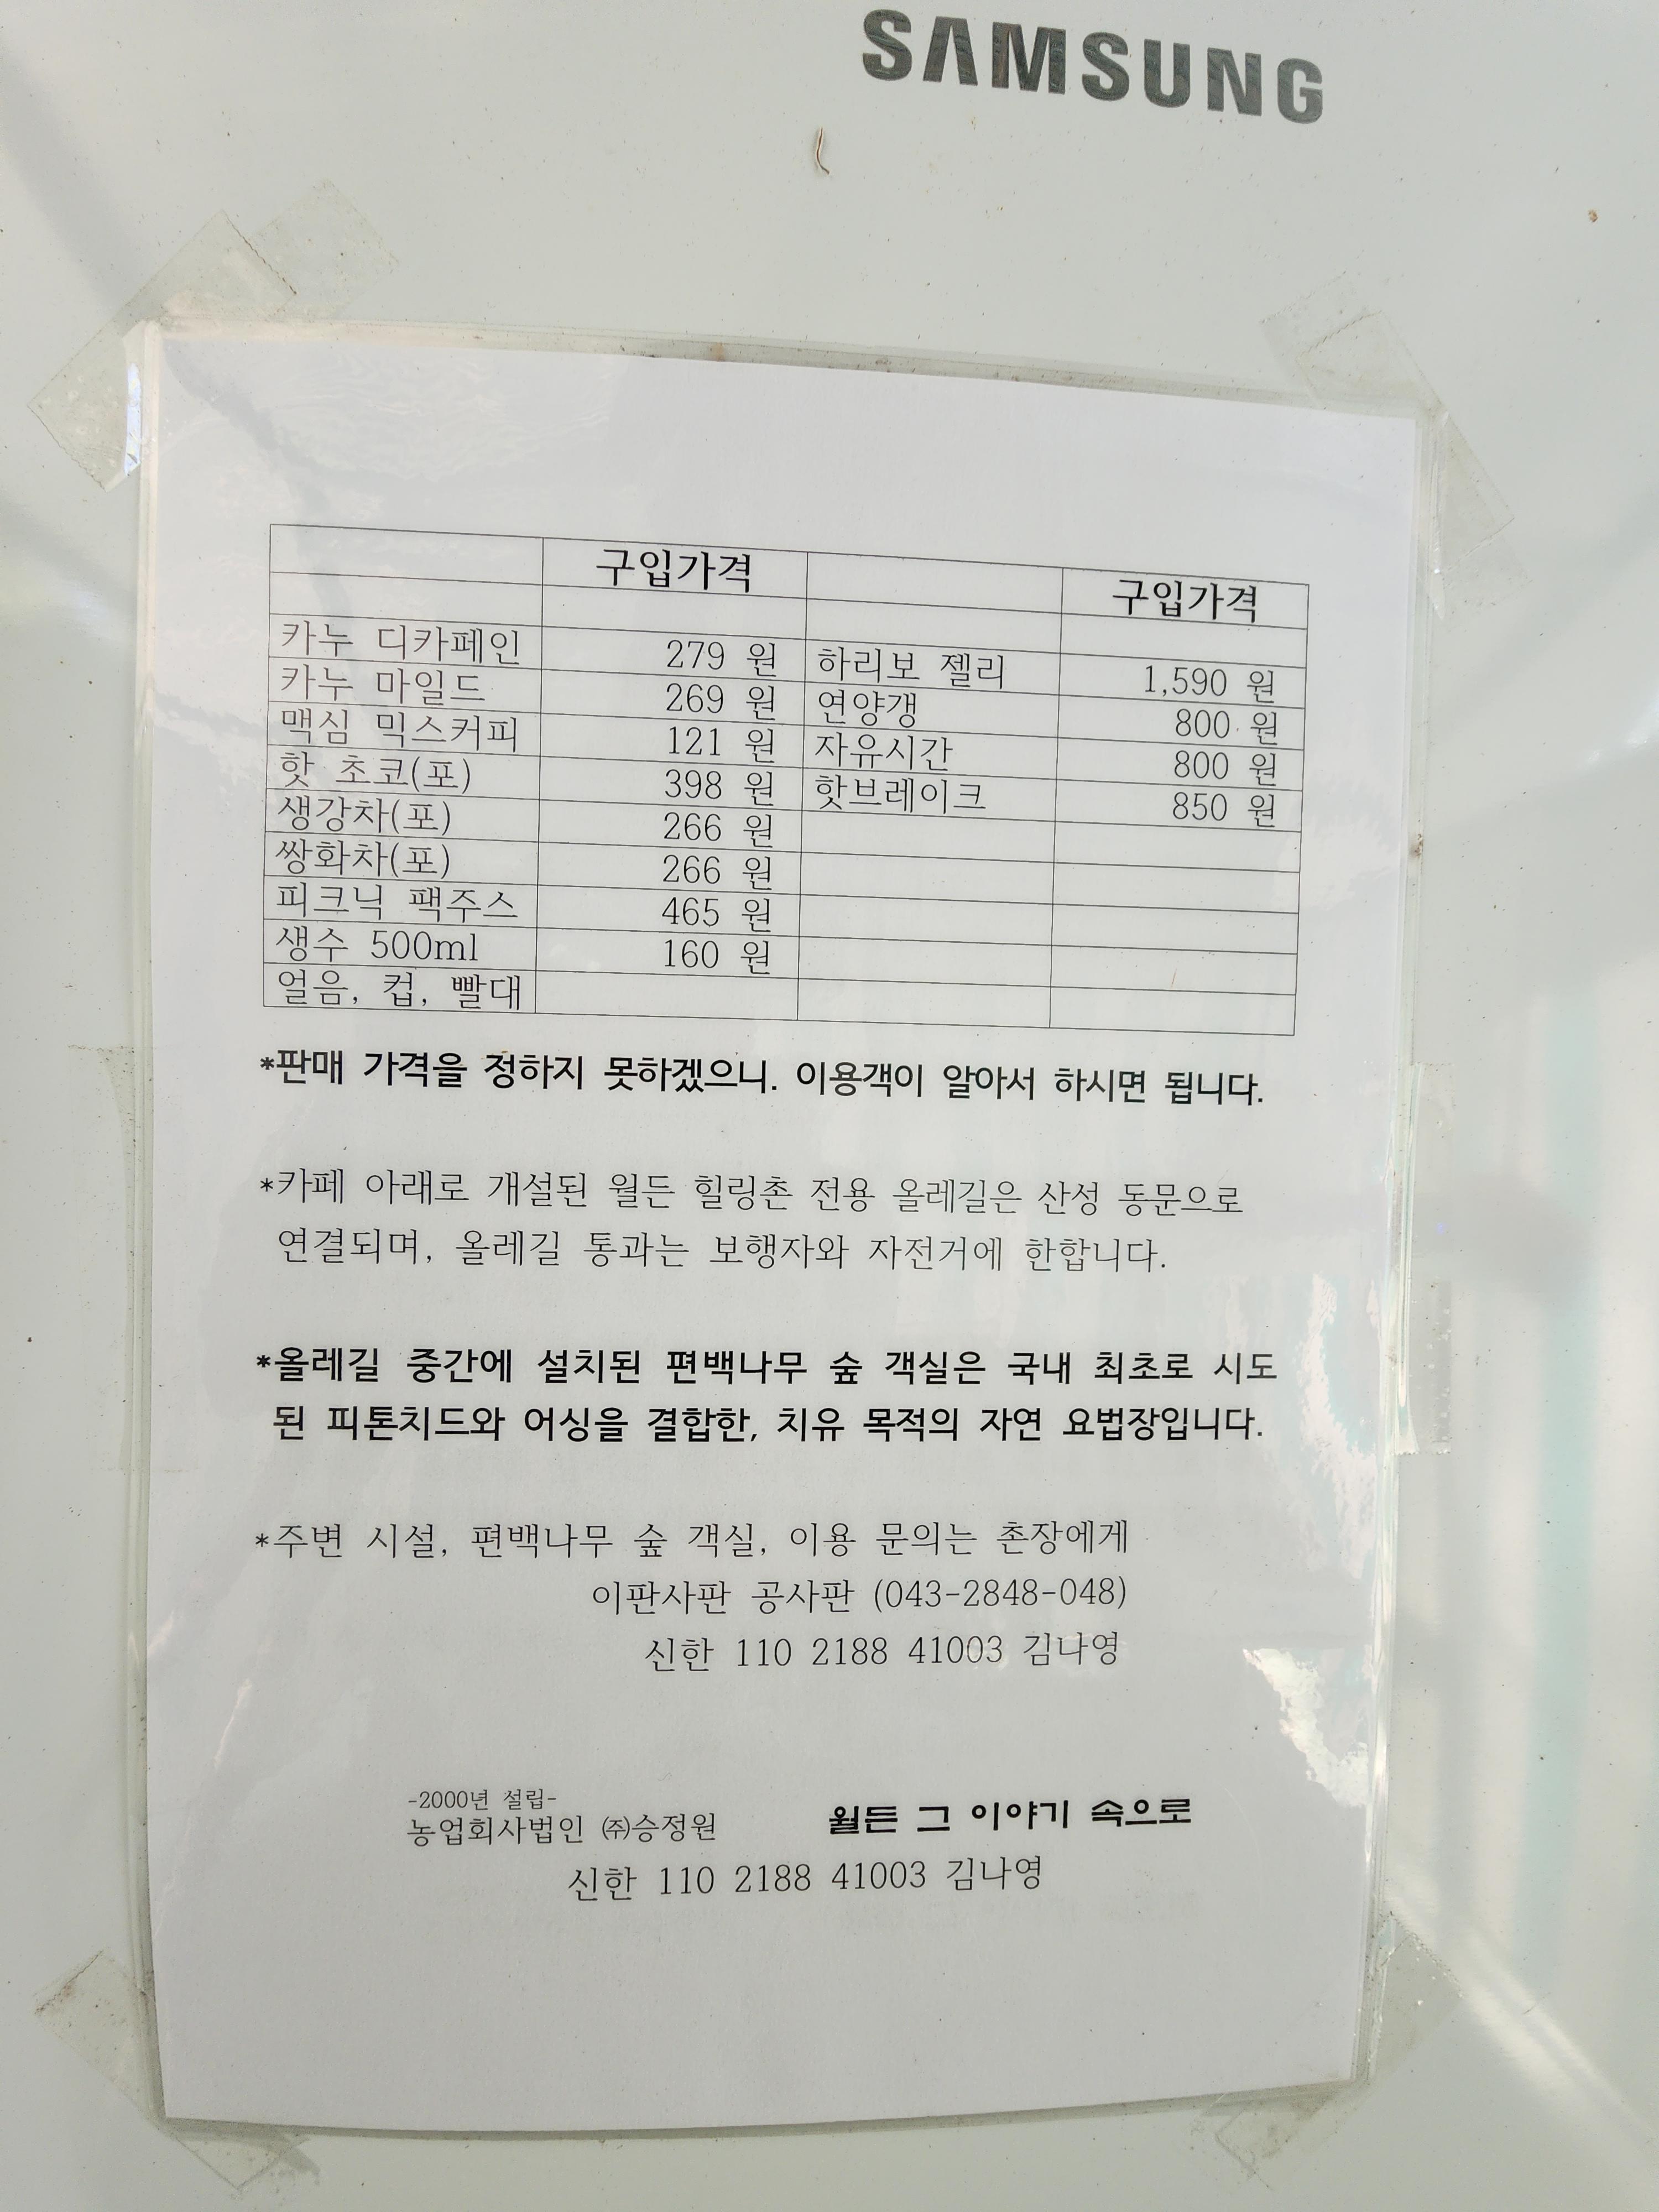 SAMSUNG
구입가격 구입가격
카누 디카페인 279 원 하리보 젤리 1,590 원
카누 마일드 269 원 연양갱 800 원
맥심 믹스커피 121 원 자유시간 800 원
핫 초코(포) 398 원 핫브레이크 850 원
생강차(포) 266 원
쌍화차(포) 266 원
피크닉 팩주스 465 원
생수 500ml 160 원
얼음, 컵, 빨대
*판매 가격을 정하지 못하겠으니. 이용객이 알아서 하시면 됩니다.
*카페 아래로 개설된 월든 힐링촌 전용 올레길은 산성 동문으로
연결되며, 올레길 통과는 보행자와 자전거에 한합니다.
*올레길 중간에 설치된 편백나무 숲 객실은 국내 최초로 시도
된 피톤치드와 어싱을 결합한, 치유 목적의 자연 요법장입니다.
*주변 시설, 편백나무 숲 객실, 이용 문의는 촌장에게
이판사판 공사판 (043-2848-048)
신한 110 2188 41003 김나영
-2000년 설립-
농업회사법인 ㈜승정원 월든 그 이야기 속으로
신한 110 2188 41003 김나영